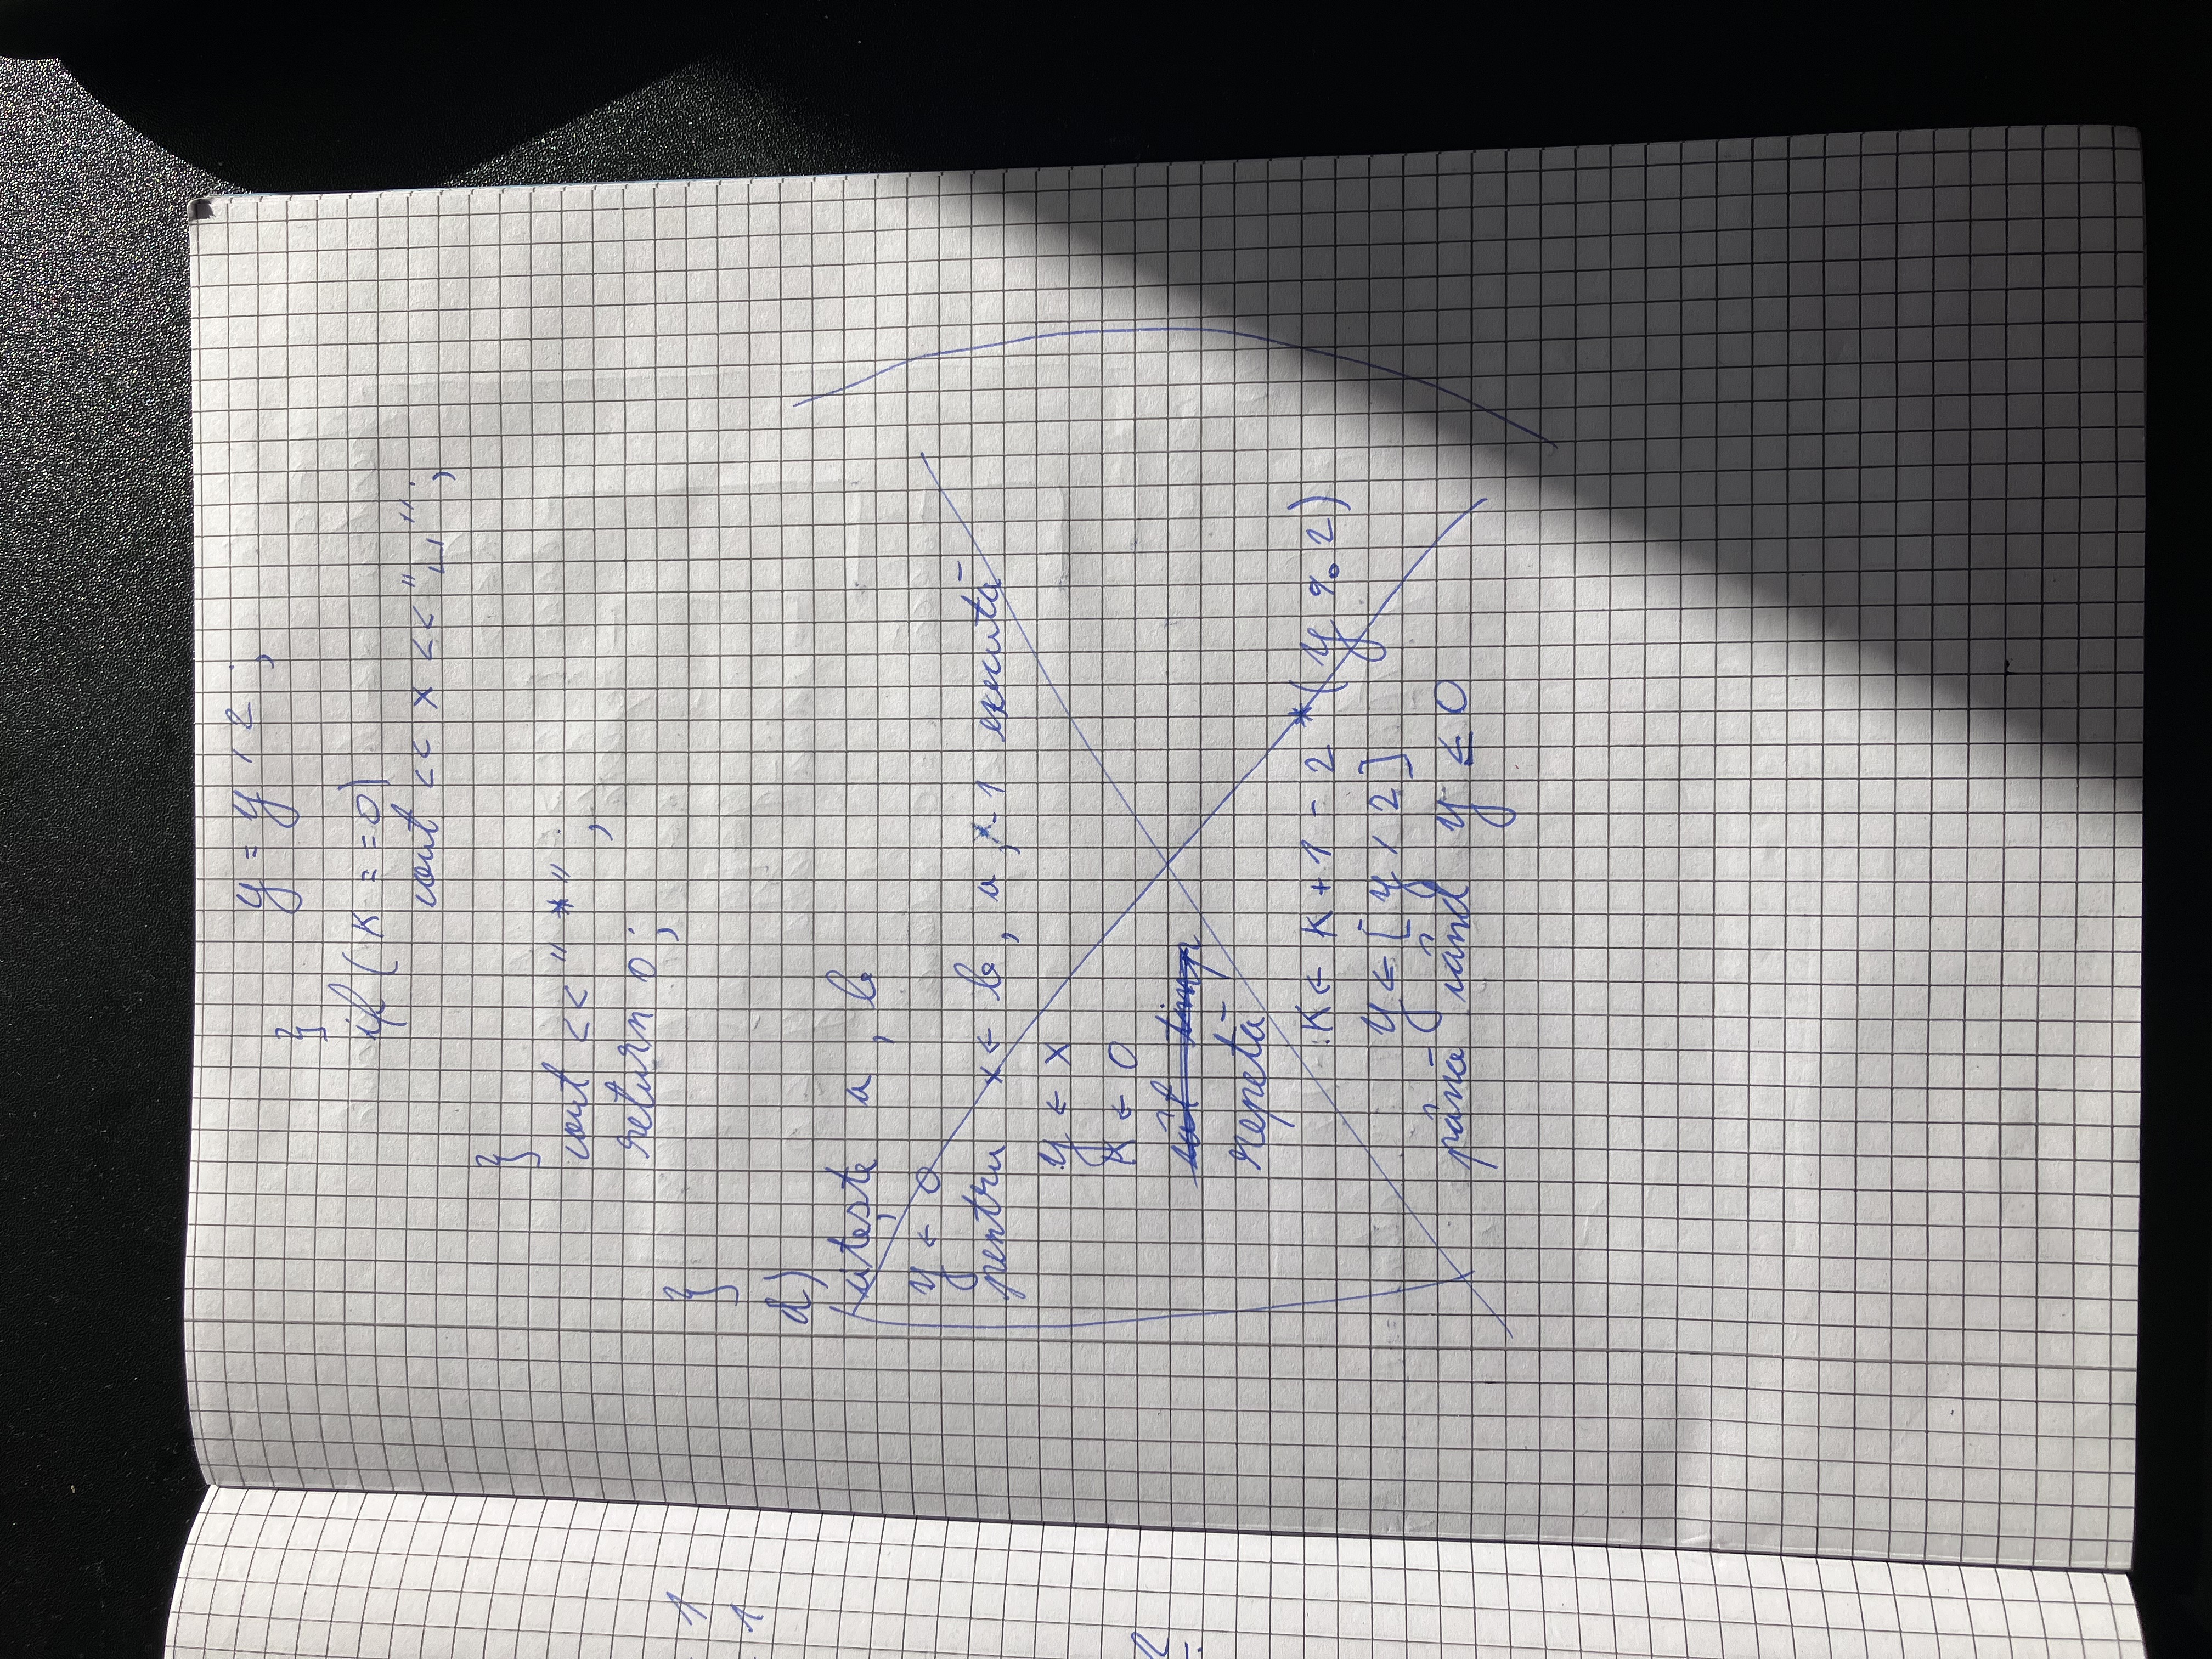 y = y / 2 ;
}
if ( K = = 0 )
cout << x << "⎵" ;
}
cout << " * " ;
return 0 ;
}
d)
citește a , b
y ← 0
pentru x ← b , a , -1 execută
y ← x
K ← 0
cât timp
repetă
K ← K + 1 - 2 * ( y % 2 )
y ← [ y / 2 ]
până când y ≤ 0
1
1